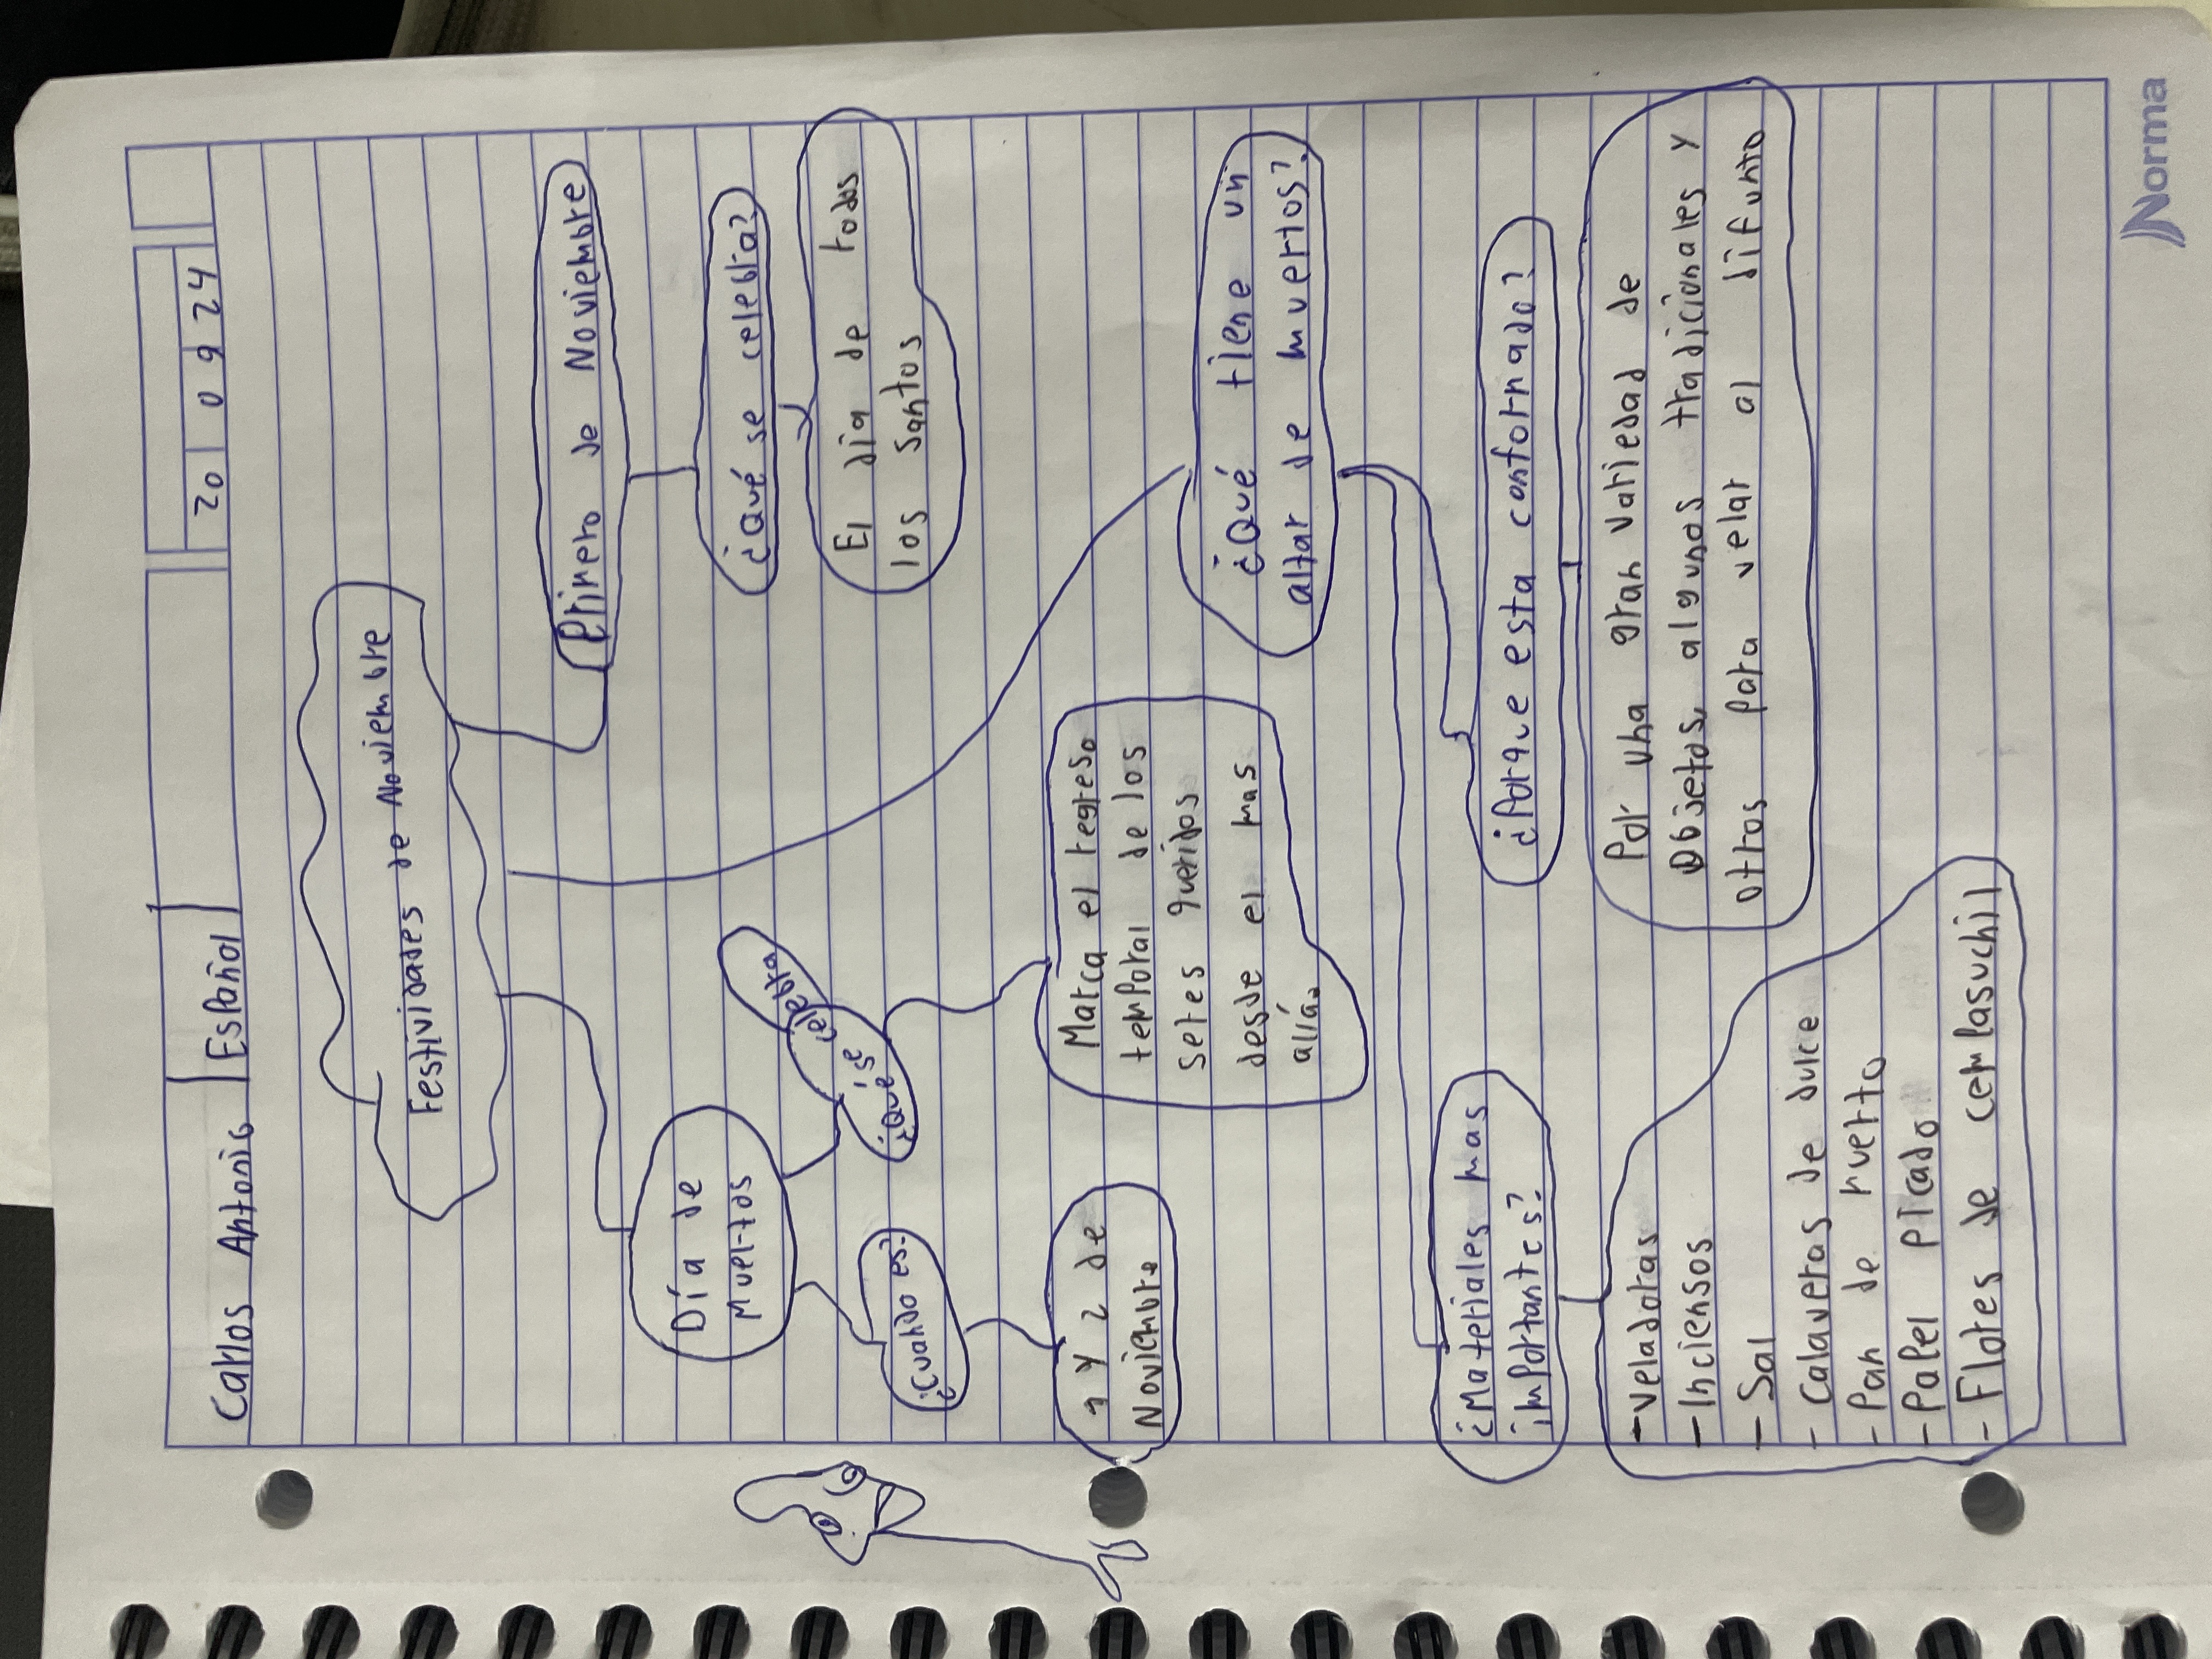 Carlos Antonio
Español
20 09 24
Festividades de Noviembre
Primero de Noviembre
¿Qué se celebra?
El día de todos
los santos
Día de
Muertos
¿Qué se celebra
¿Cuando es?
1 y 2 de
Noviembre
Marca el regreso
temporal de los
seres queridos
desde el mas
allía.
¿Qué tiene un
altar de muertos?
¿Porque esta confornado?
Por una gran variedad de
Objetos, algunos tradicionales y
otros para velar al difunto
¿Materiales mas
importantes?
- veladoras
- Inciensos
- Sal
- Calaveras de dulce
- Pan de muerto
- Papel picado
- Flores de cemplasuchil
Norma